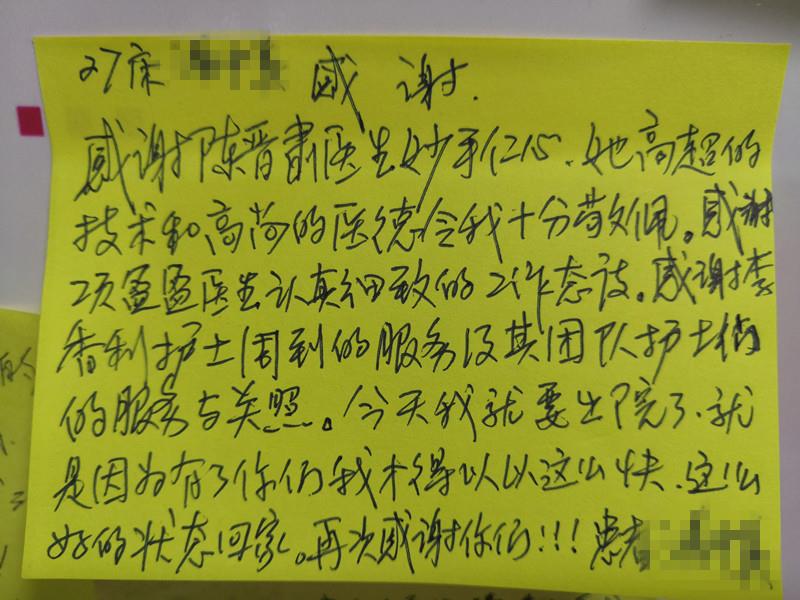 27床 感谢.
感谢陈晋肃医生妙手仁心、她高超的
技术和高尚的医德令我十分敬佩。感谢
项盈盈医生认真细致的工作态度。感谢李
香利护士周到的服务及其团队护士们
的服务与关照。今天我就要出院了、就
是因为有了你们我才得以以这么快、这么
好的状态回家。再次感谢你们!!!患者